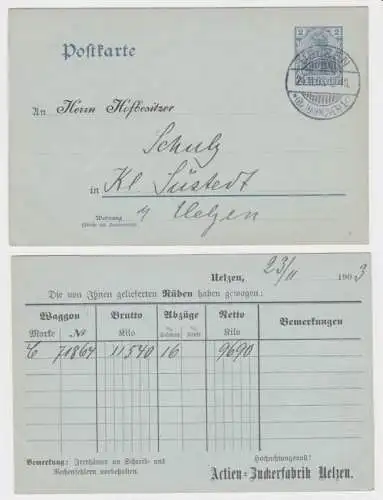 Postkarte
2
UELZEN
An Herrn Hofbesitzer
Schulz
in Kl. Süstedt
b/ Uelzen
Wohnung
Uelzen, 23/11 1903
Die von Ihnen gelieferten Rüben haben gewogen:
Waggon Brutto Abzüge Netto Bemerkungen
Marke No Kilo % Schmutz % Kilo
C 71864 11540 16 9690
Bemerkung: Irrthümer an Schreib- und
Rechenfehlern vorbehalten.
Hochachtungsvoll!
Actien-Zuckerfabrik Uelzen.